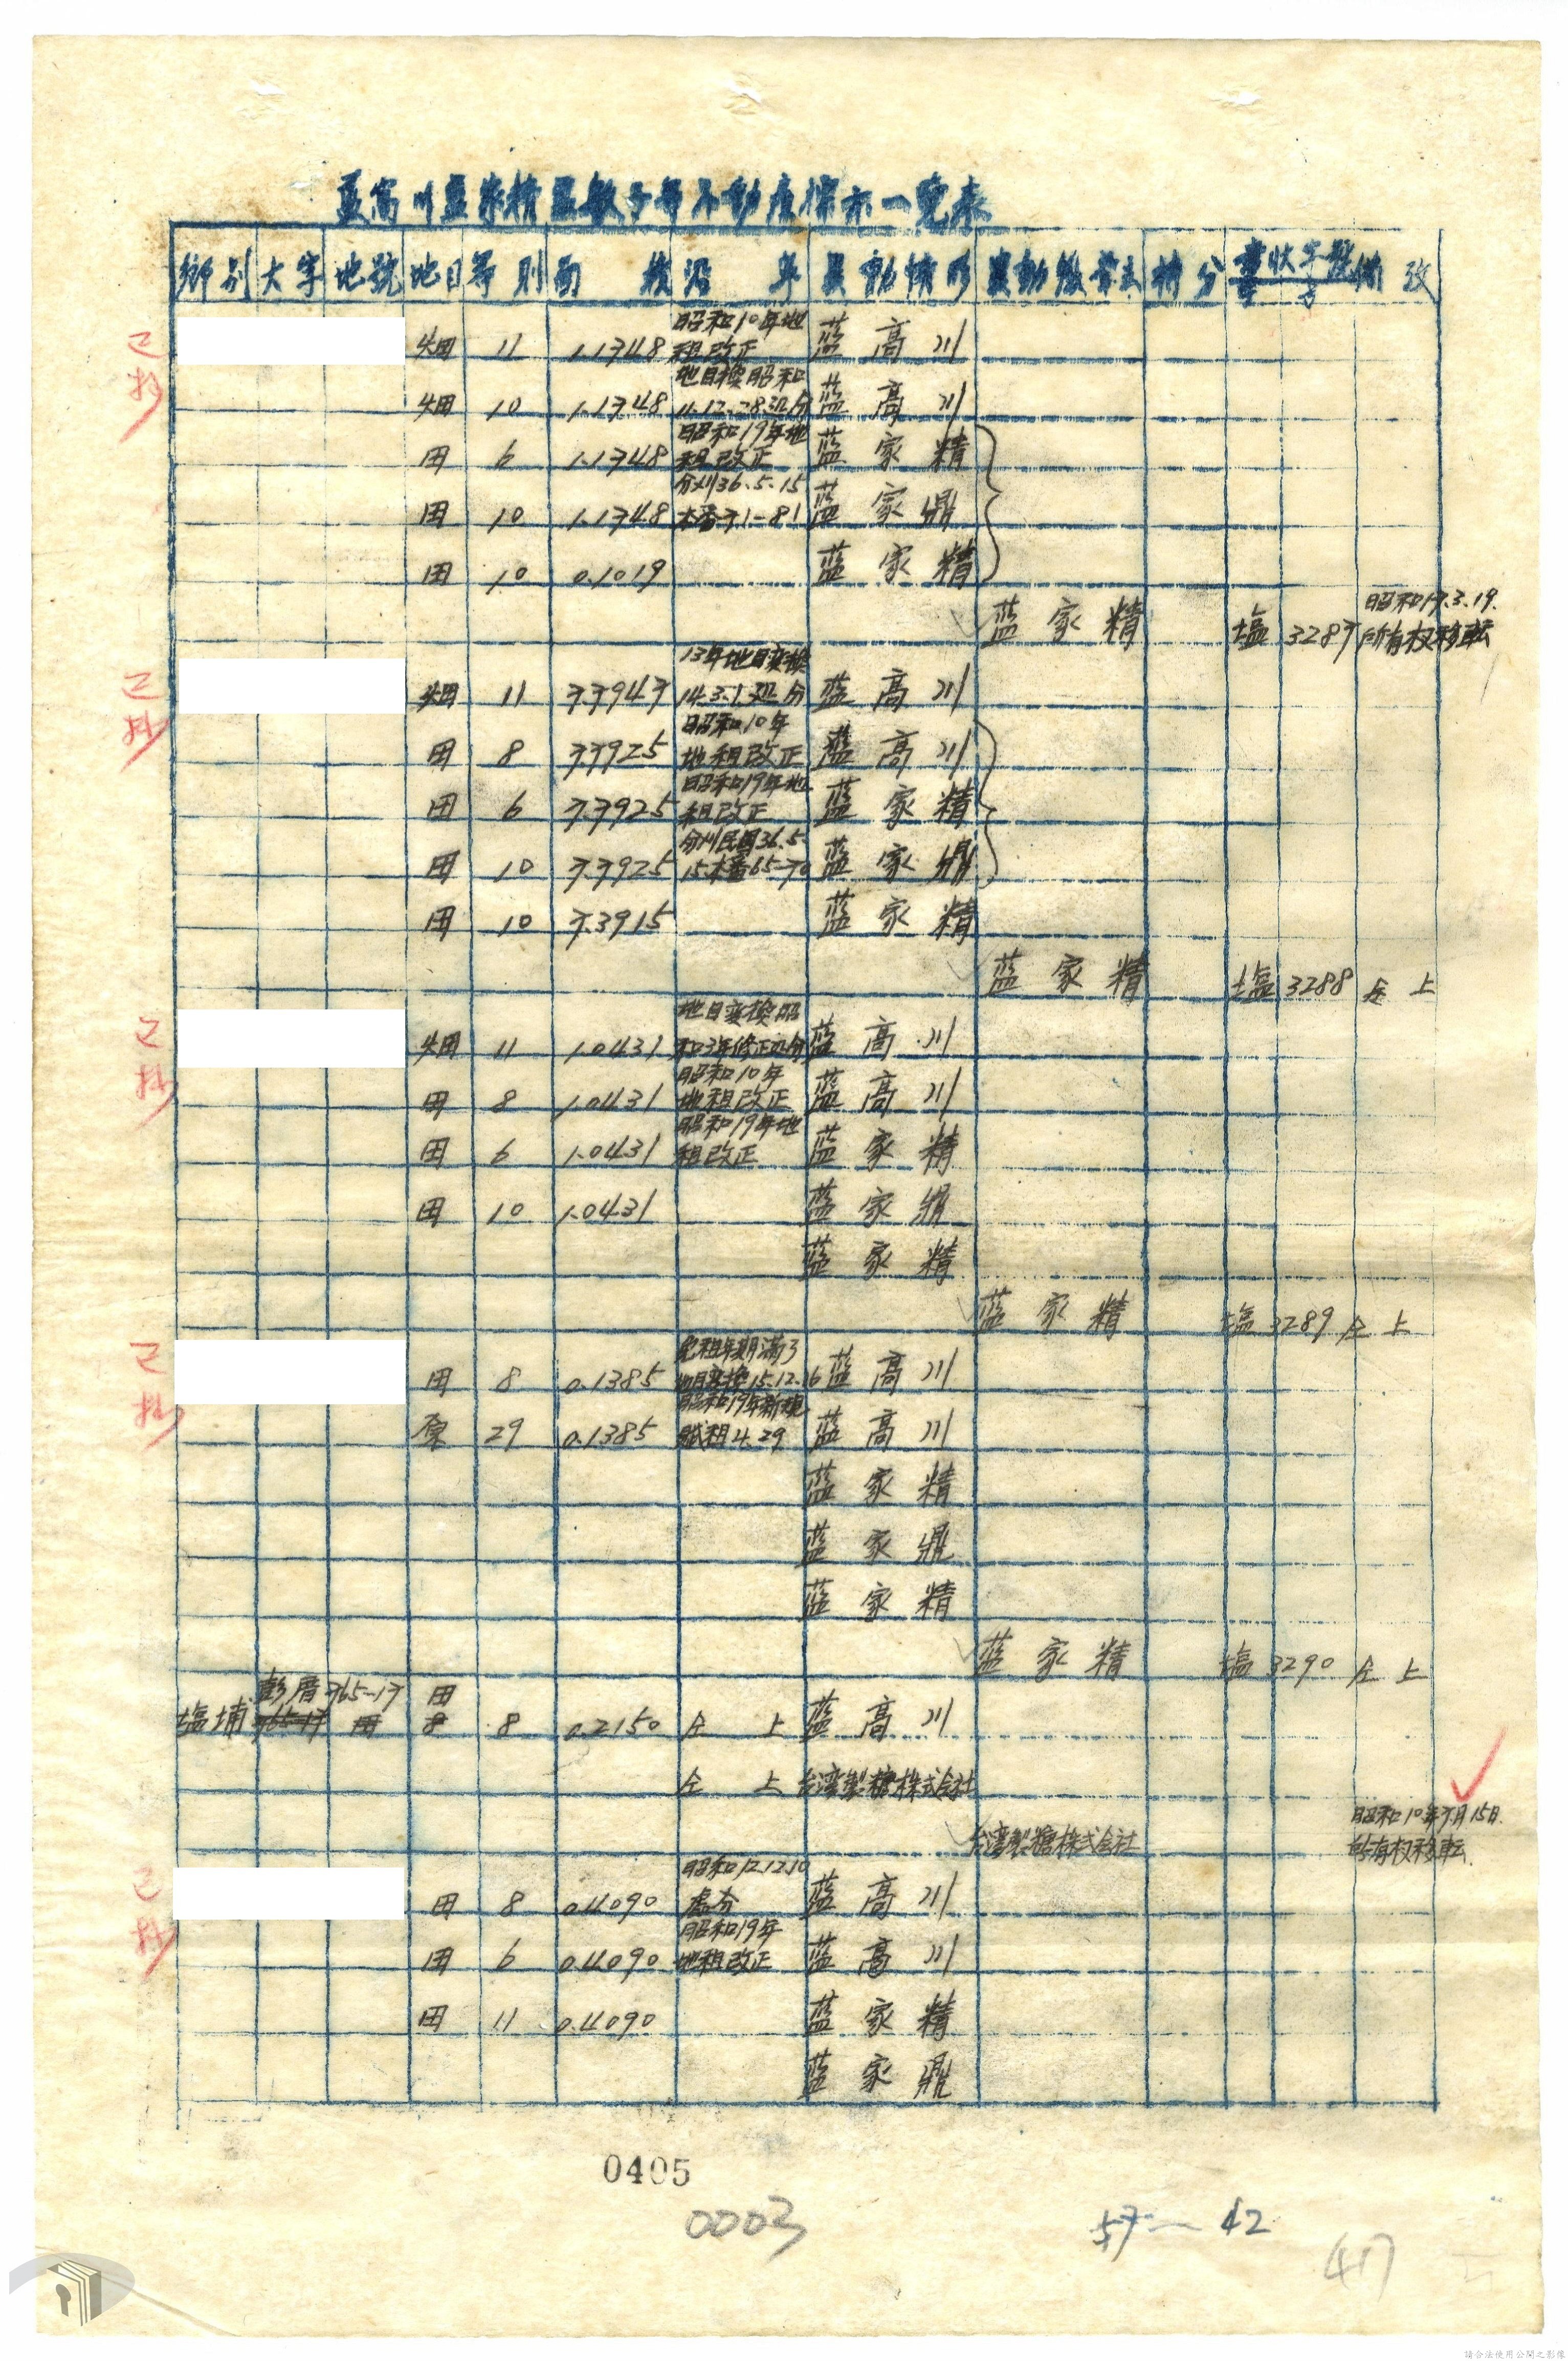 藍高川藍家精藍敏子等不動產標示一覽表
鄉別 大字 地號 地目 等則 面積 沿革 異動情形 異動繳業主 持分 書狀字號 備攷
已抄
畑 11 1.1748 昭和10年地租改正 藍高川
畑 10 1.1748 地目換昭和11.12.28処分 藍高川
田 6 1.1748 昭和19年地租改正 藍家精
田 10 1.1748 分刈36.5.15本番71-81 藍家鼎
田 10 0.1019 藍家精
藍家精 塩 3287 昭和17.3.19.所有权移転
已抄
畑 11 7.7947 13年地目変換14.3.1処分 藍高川
田 8 7.7925 昭和10年地租改正 藍高川
田 6 7.7925 昭和19年地租改正 藍家精
田 10 7.7925 分刈民国36.5.15.本番65-70 藍家鼎
田 10 7.3915 藍家精
藍家精 塩 3288 仝上
已抄
畑 11 1.0431 地目変換昭和3年修正処分 藍高川
田 8 1.0431 昭和10年地租改正 藍高川
田 6 1.0431 昭和19年地租改正 藍家精
田 10 1.0431 藍家鼎
藍家精
藍家精 塩 3289 仝上
已抄
田 8 0.1385 免租年期満了地目変換15.12.16 藍高川
原 29 0.1385 昭和19年新規賦租4.29 藍高川
藍家精
藍家鼎
藍家精
藍家精 塩 3290 仝上
塩埔 彭厝 765-17 田 8 0.2150 仝上 藍高川
765-17 田 8
仝上 台湾製糖株式会社
台湾製糖株式会社 昭和10年7月15日.所有权移転.
已抄
田 8 0.4090 昭和12.12.10處分 藍高川
田 6 0.4090 昭和19年地租改正 藍高川
田 11 0.4090 藍家精
藍家鼎
0405
0003
57—42
417
請合法使用公開之影像